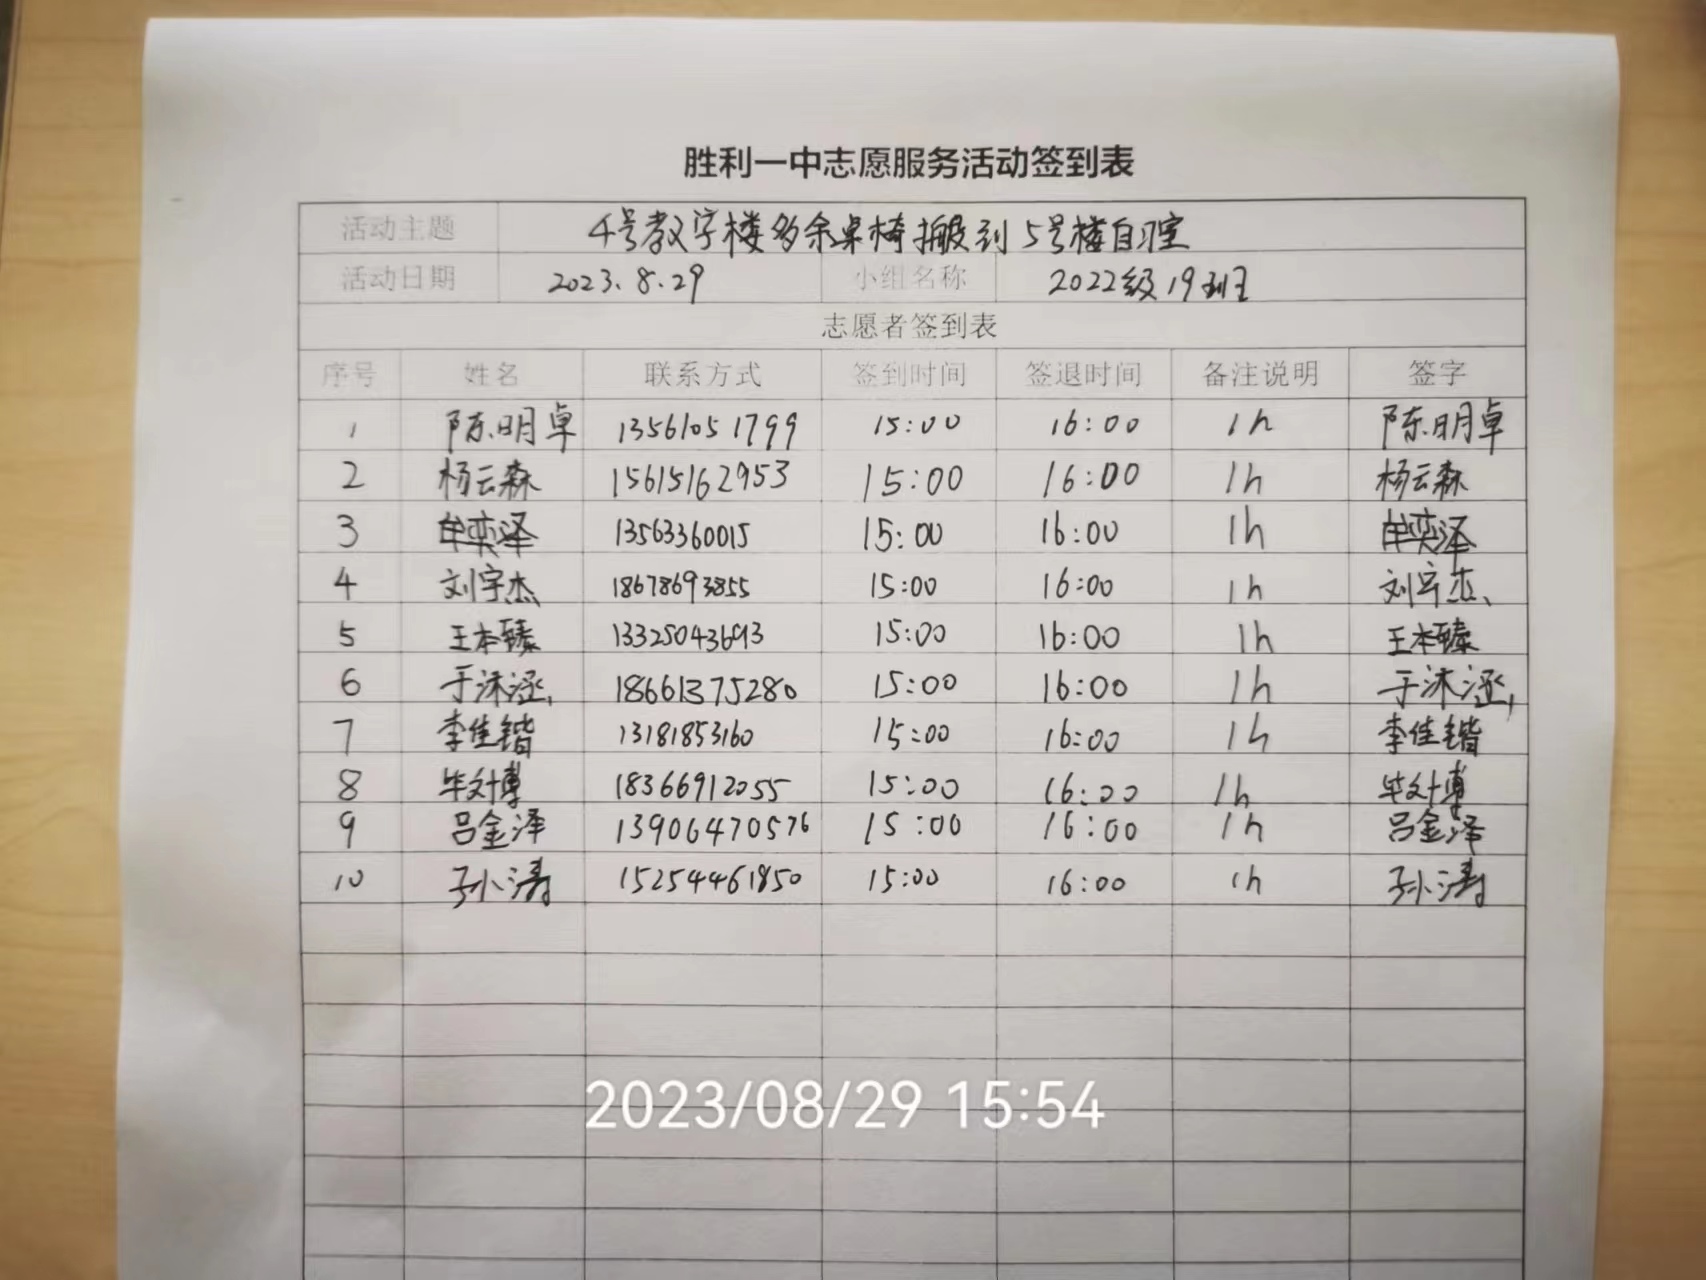 胜利一中志愿服务活动签到表
活动主题 4号教学楼多余桌椅搬到5号楼自习室
活动日期 2023.8.29 小组名称 2022级19班
志愿者签到表
序号 姓名 联系方式 签到时间 签退时间 备注说明 签字
1 陈明卓 13561051799 15:00 16:00 1h 陈明卓
2 杨云森 15615162953 15:00 16:00 1h 杨云森
3 牟奕泽 13563360015 15:00 16:00 1h 牟奕泽
4 刘宇杰 18678693855 15:00 16:00 1h 刘宇杰
5 王本臻 13325043693 15:00 16:00 1h 王本臻
6 于沐涵 18661375280 15:00 16:00 1h 于沐涵
7 李佳锴 13181853160 15:00 16:00 1h 李佳锴
8 毕文博 18366912055 15:00 16:00 1h 毕文博
9 吕金泽 13906470576 15:00 16:00 1h 吕金泽
10 孙小涛 15254461850 15:00 16:00 1h 孙小涛
2023/08/29 15:54